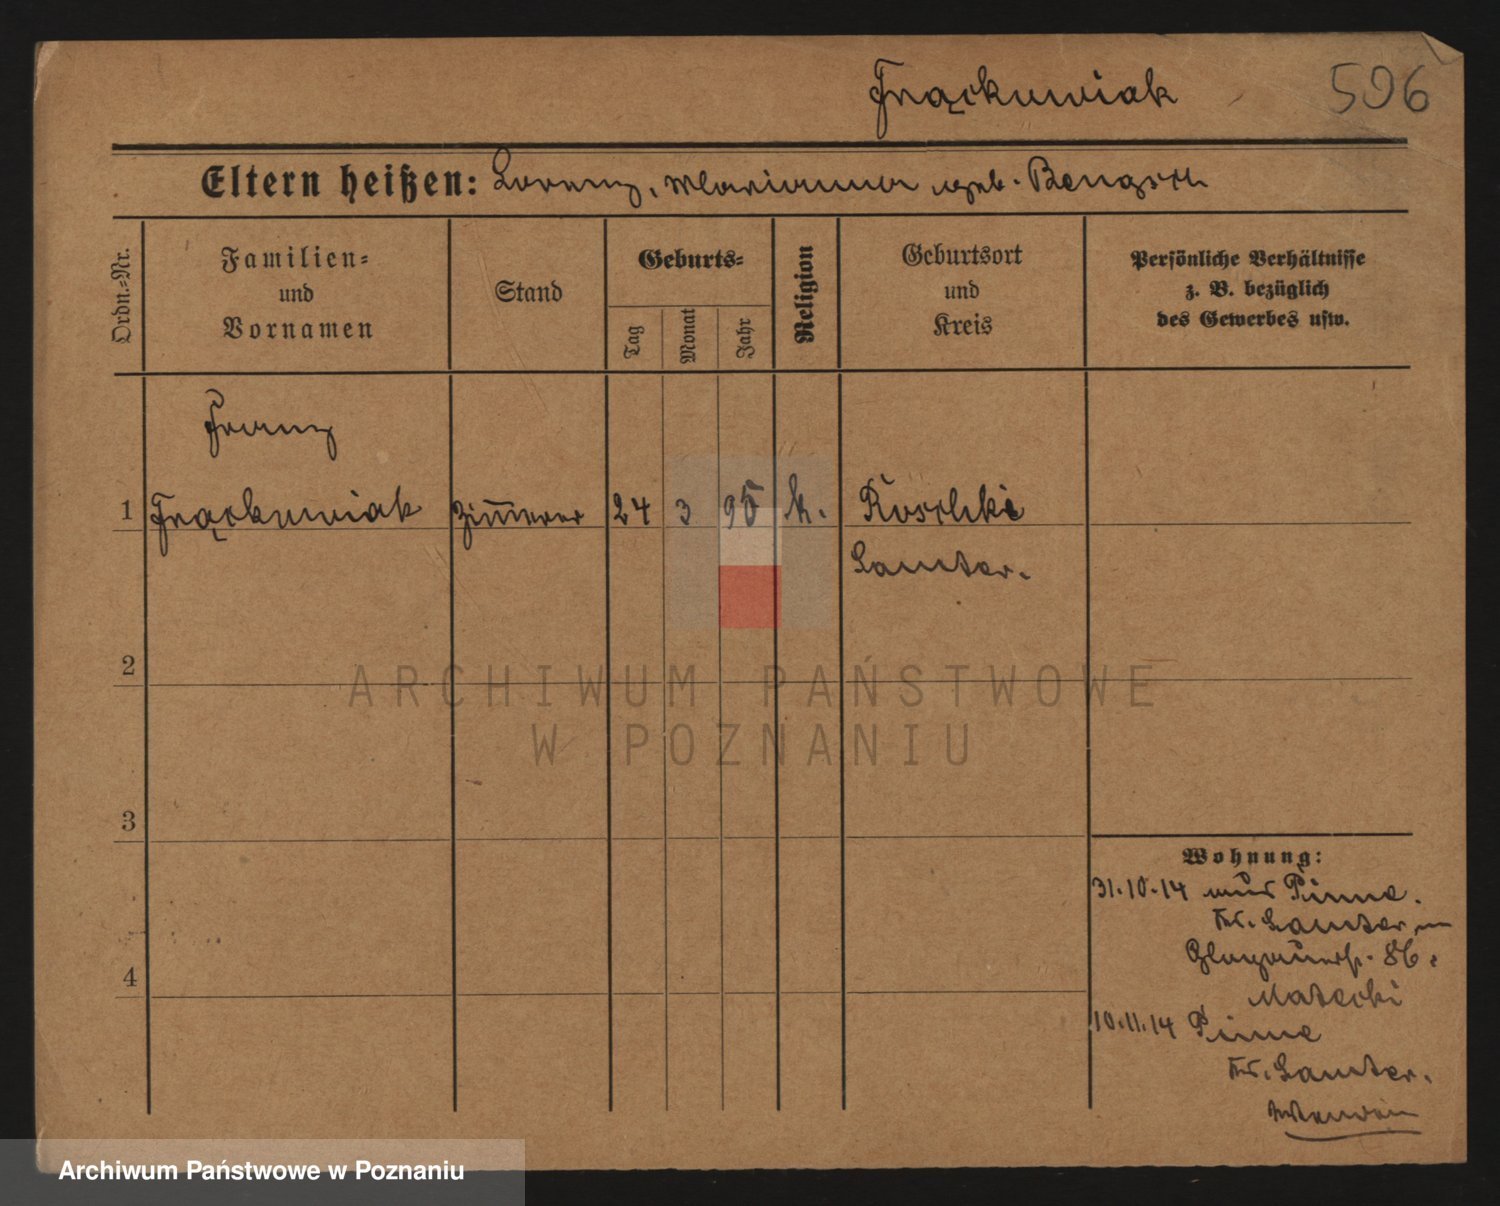 Frąckowiak 596
Eltern heißen: Lorenz, Marianna geb. Bengsch
Ordn.-Nr.
Familien- und Vornamen
Stand
Geburts-
Tag
Monat
Jahr
Religion
Geburtsort und Kreis
Persönliche Verhältnisse z. B. bezüglich des Gewerbes usw.
Franz
1 Frąckowiak Zimmerer 24 3 95 k.
Samter.
2
ARCHIWUM PAŃSTWOWE
W POZNANIU
3
Wohnung:
31.10.14 aus Pinne.
Kr. Samter
86.
4
Matecki
10.11.14 Pinne
Kr. Samter.
Archiwum Państwowe w Poznaniu